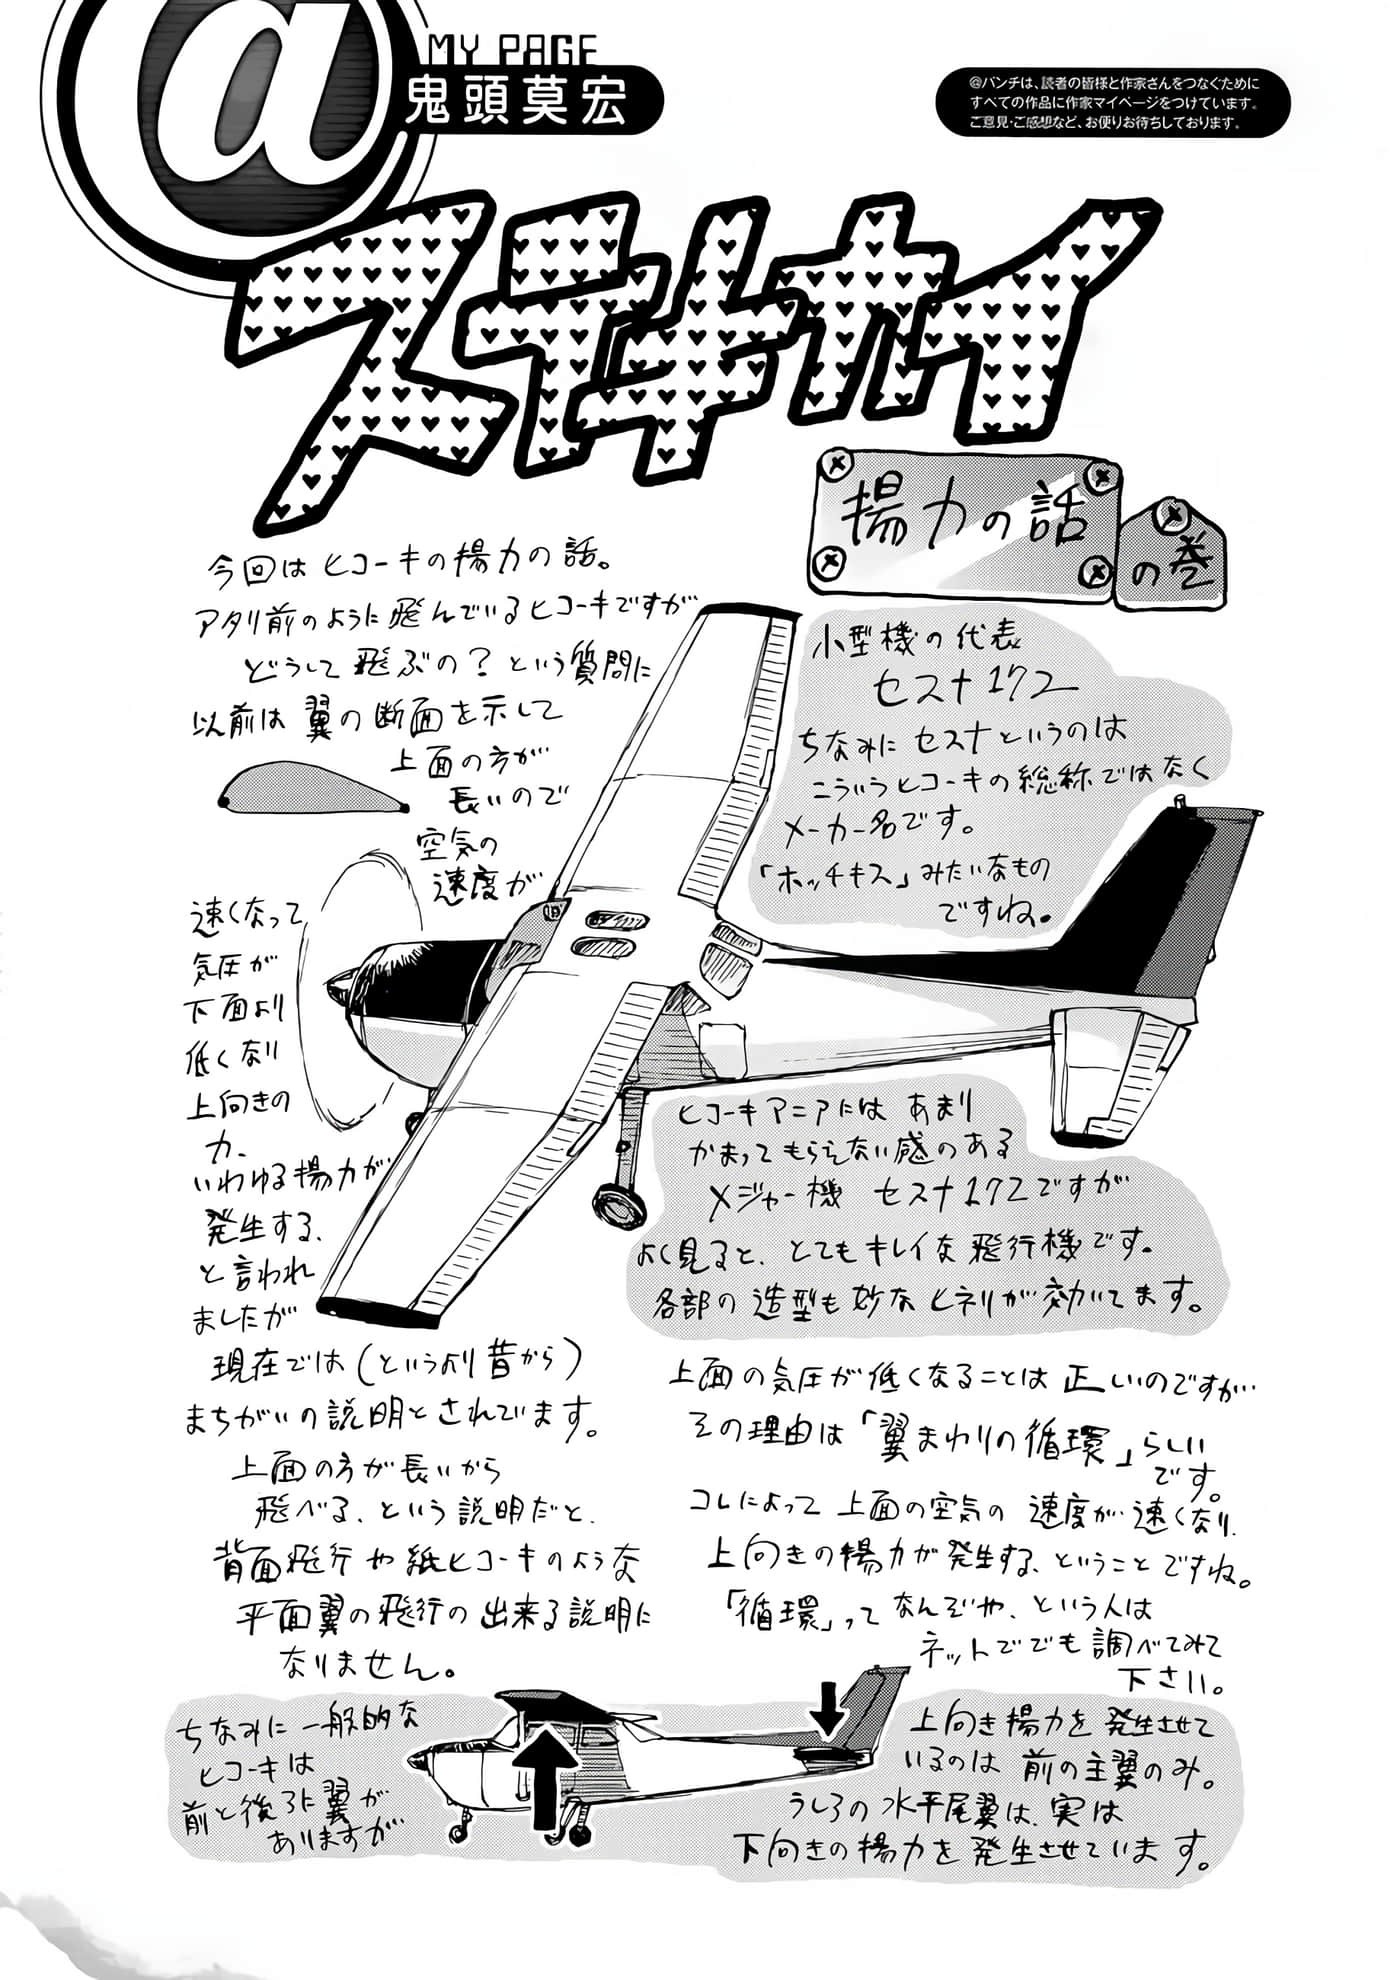 @
MY PAGE
鬼頭莫宏
@バンチは、読者の皆様と作家さんをつなぐために
すべての作品に作家マイページをつけています。
ご意見・ご感想など、お便りお待ちしております。
揚力の話
の巻
今回はヒコーキの揚力の話。
アタリ前のように飛んでいるヒコーキですが
どうして飛ぶの?という質問に
以前は翼の断面を示して
上面の方が
長いので
空気の
速度が
速くなって
気圧が
下面より
低くなり
上向きの
力、
いわゆる揚力が
発生する、
と言われ
ましたが
現在では(というより昔から)
まちがいの説明とされています。
上面の方が長いから
飛べる、という説明だと、
背面飛行や紙ヒコーキのような
平面翼の飛行の出来る説明に
なりません。
小型機の代表
セスナ172
ちなみにセスナというのは
こういうヒコーキの総称ではなく
メーカー名です。
「ホッチキス」みたいなもの
ですね。
ヒコーキマニアにはあまり
かまってもらえない感のある
メジャー機 セスナ172ですが
よく見ると、とてもキレイな飛行機です。
各部の造型も妙なヒネリが効いてます。
上面の気圧が低くなることは正しいのですが…
その理由は「翼まわりの循環」らしい
です。
コレによって上面の空気の速度が速くなり、
上向きの揚力が発生する、ということですね。
「循環」ってなんぞや、という人は
ネットででも調べてみて
下さい。
ちなみに一般的な
ヒコーキは
前と後ろに翼が
ありますが
上向き揚力を発生させて
いるのは前の主翼のみ。
うしろの水平尾翼は、実は
下向きの揚力を発生させています。